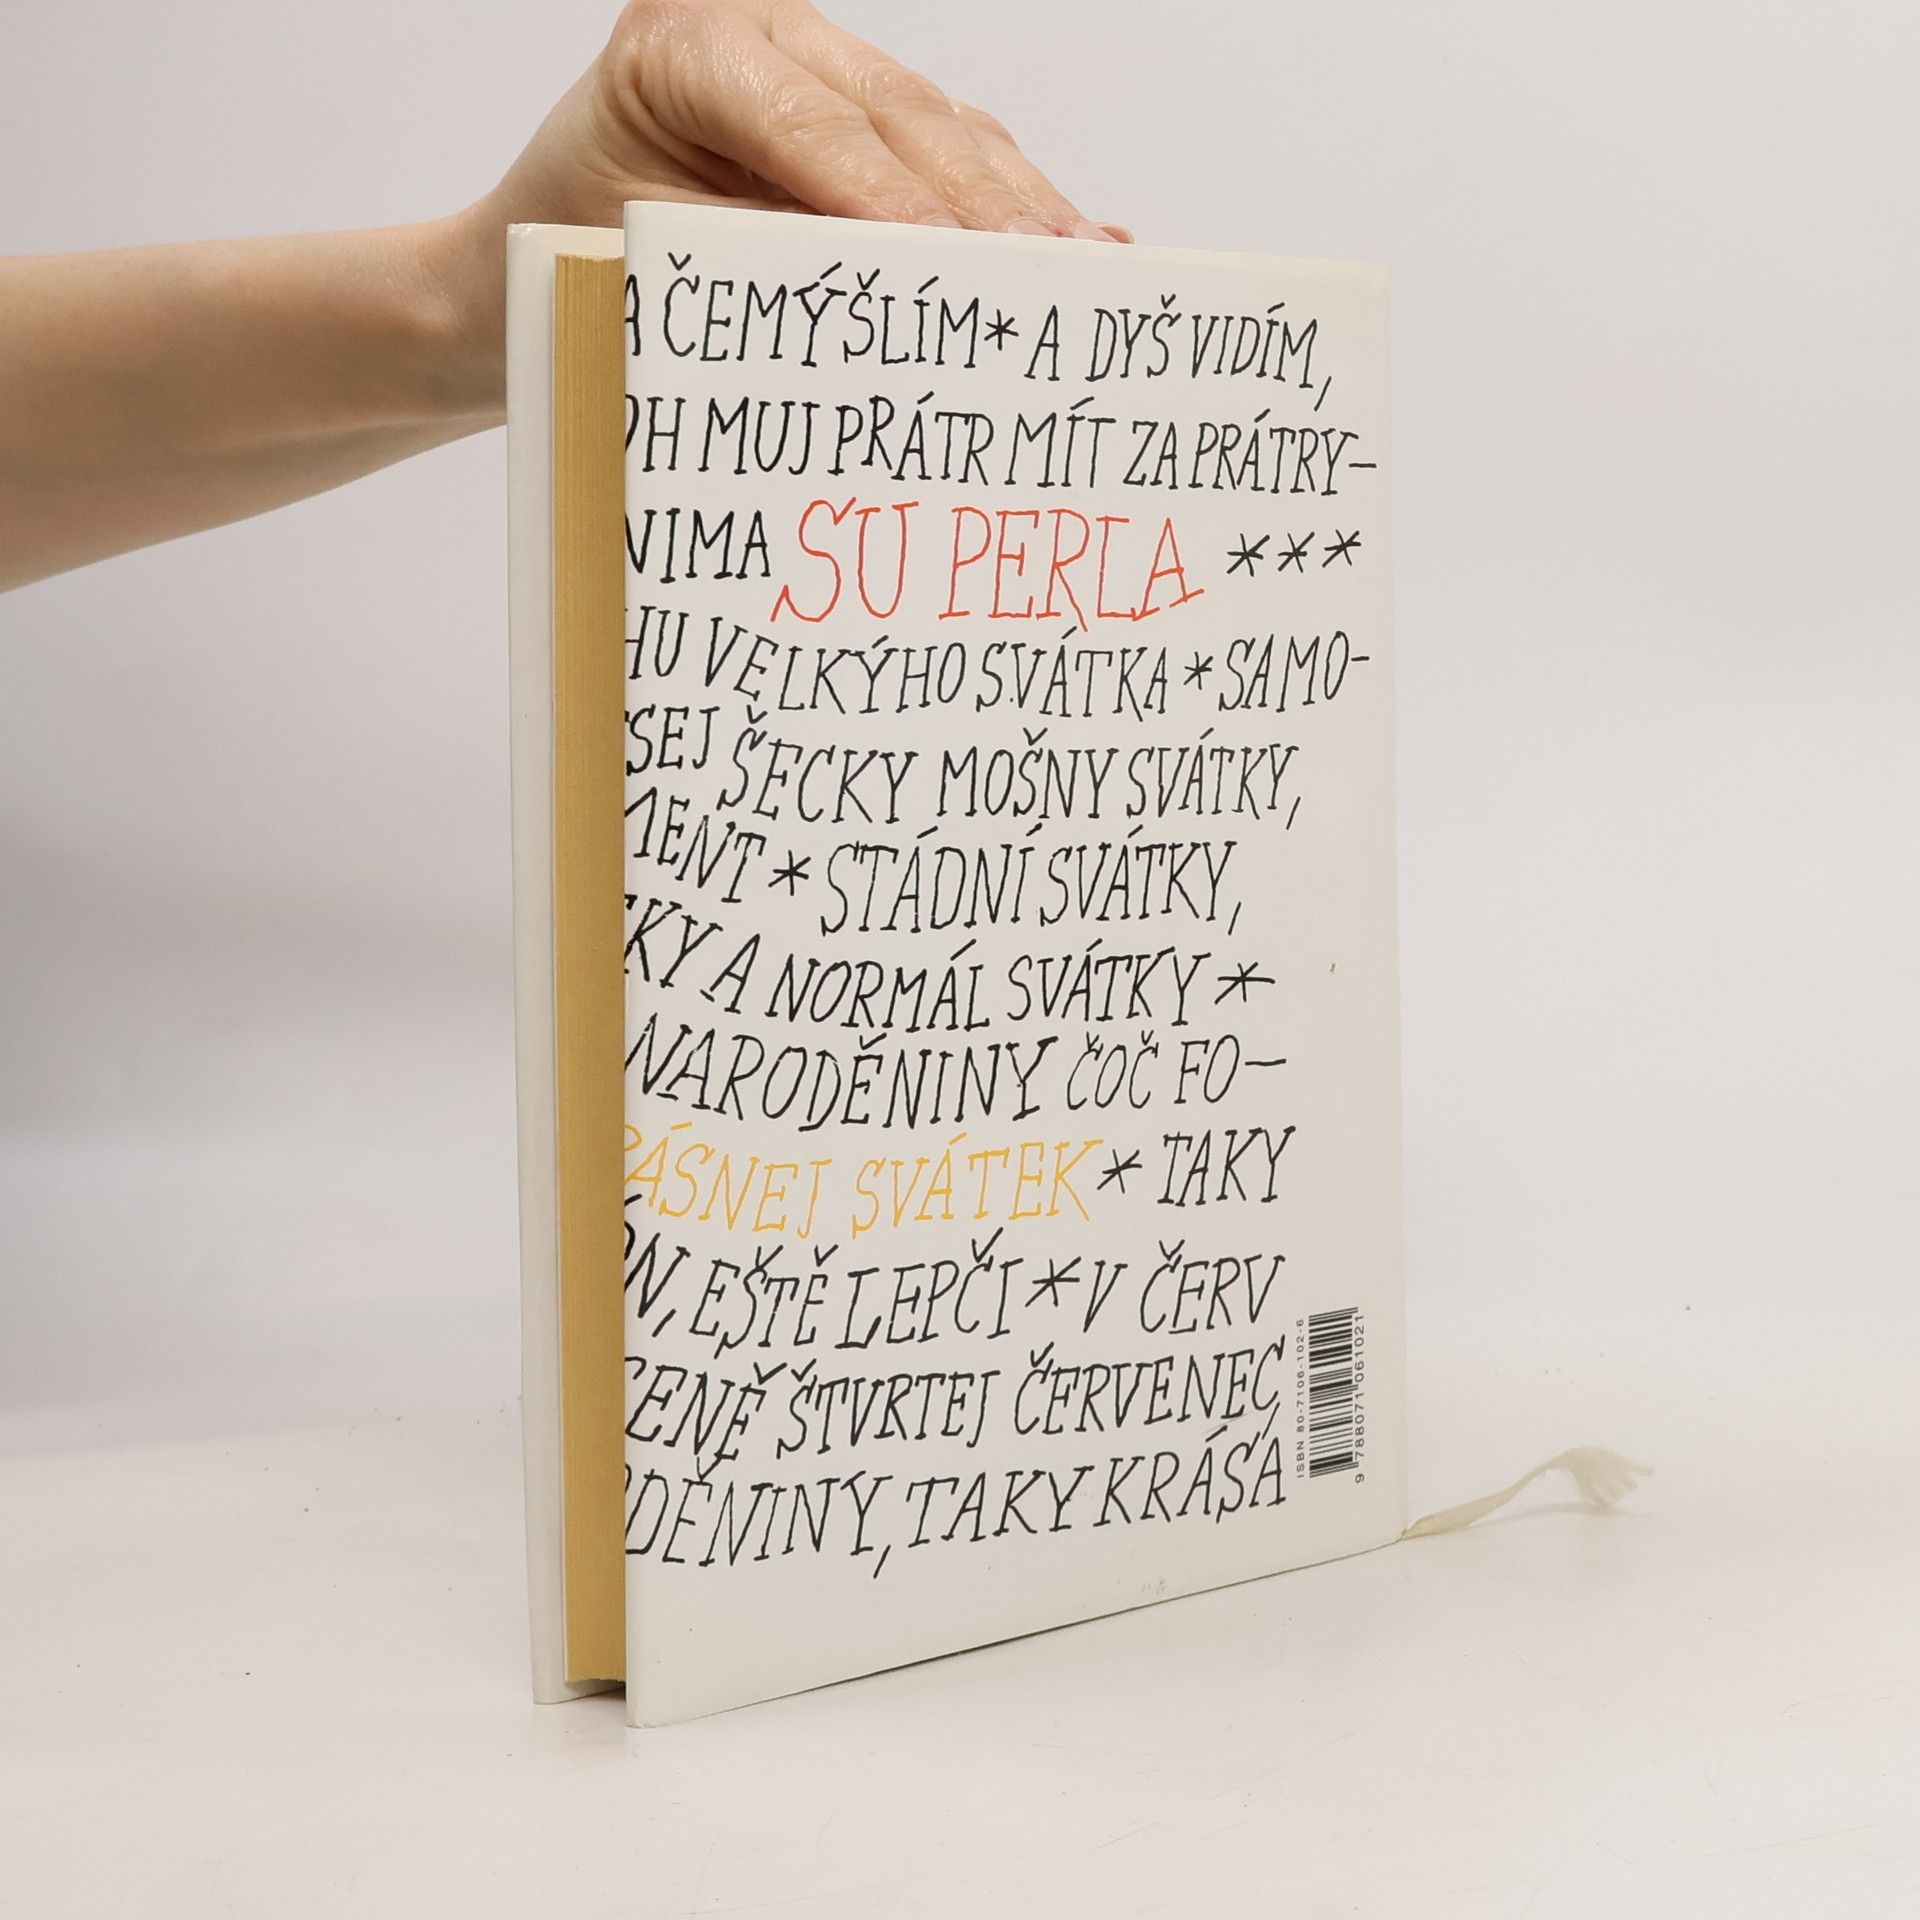 A ČEMÝŠLÍM * A DYŠ VIDÍM,
OH MUJ PRÁTR MÍT ZA PRÁTRY–
NIMA SU PERLA ***
HU VELKÝHO SVÁTKA * SAMO-
SEJ ŠECKY MOŠNY SVÁTKY,
MENT * STÁDNÍ SVÁTKY,
KY A NORMÁL SVÁTKY *
NARODĚNINY ČOČ FO–
RÁSNEJ SVÁTEK * TAKY
ÓN, EŠTĚ LEPČI * V ČERV
CENĚ ŠTVRTEJ ČERVENEC
DĚNINY, TAKY KRÁSÁ
ISBN 80-7106-102-6
9 788071 061021